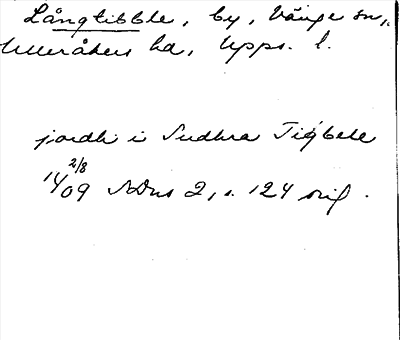 Långtibble, by, Vänge sn,
Ulleråkers hd, Upps. l.
jordh i Sudhra Tigbele
2/8
1409 SDns 2, s. 124 orig.